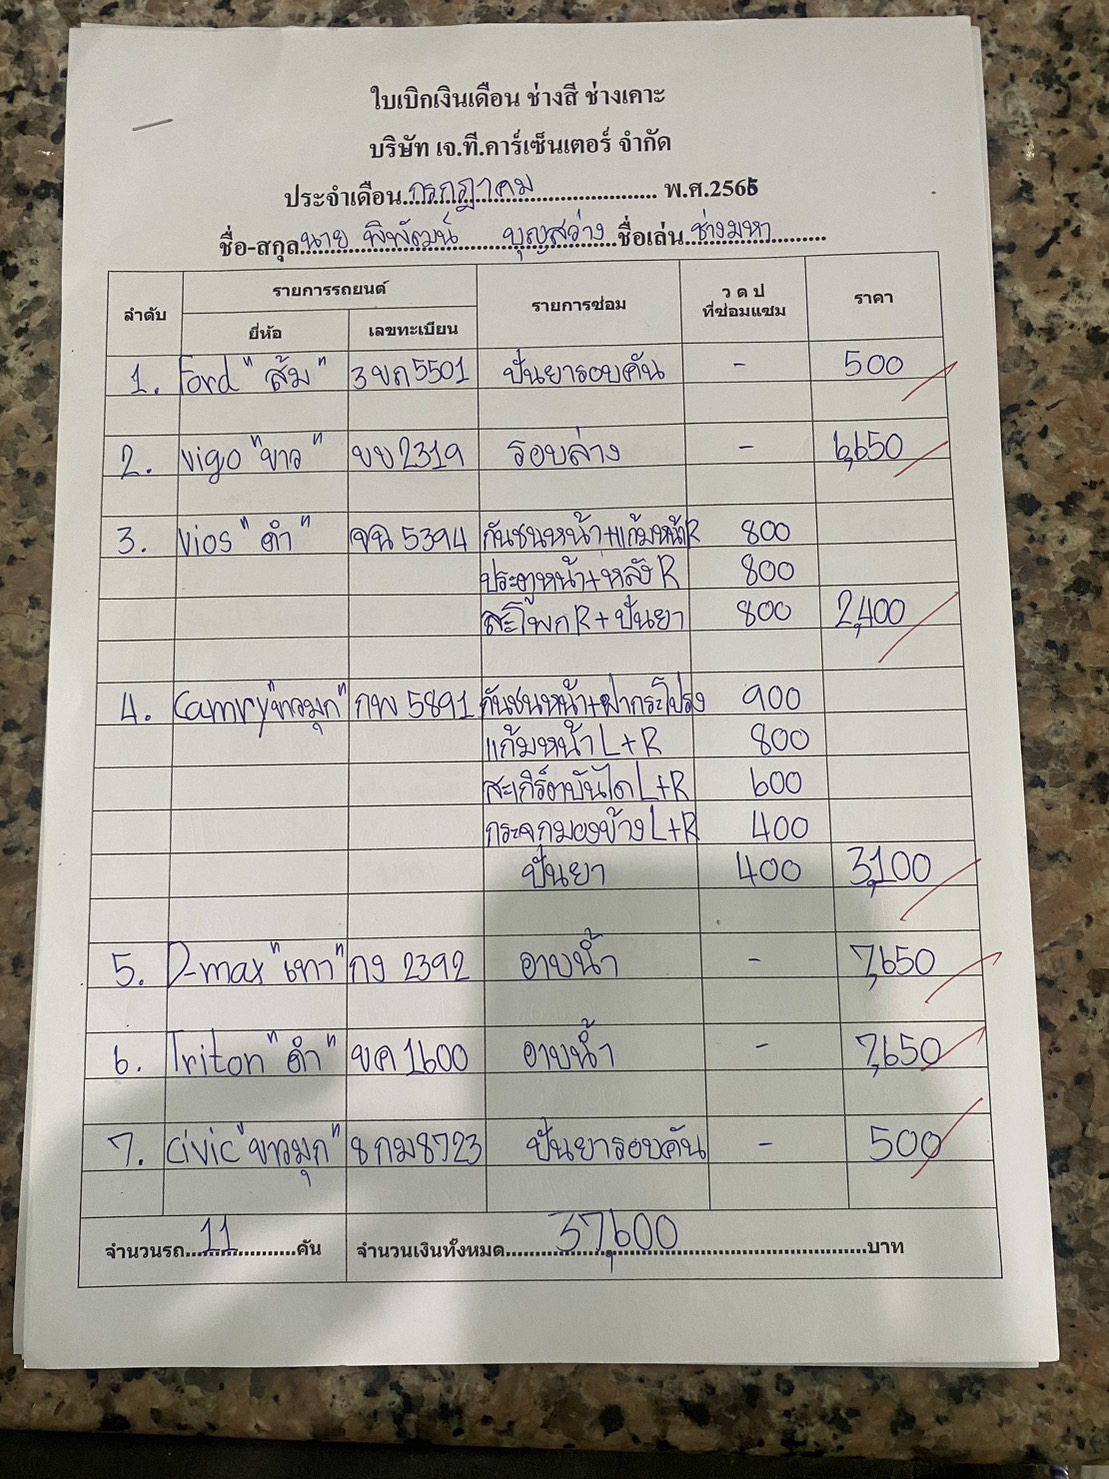 ใบเบิกเงินเดือน ช่างสี ช่างเคาะ
บริษัท เจ.ที.คาร์เซ็นเตอร์ จำกัด
ประจำเดือน...กรกฎาคม........................ พ.ศ.2565
ชื่อ-สกุล นาย พิพัฒน์ บุญสว่าง ชื่อเล่น ช่างมหา
ลำดับ รายการรถยนต์ รายการซ่อม ว ด ป ที่ซ่อมแซม ราคา
ยี่ห้อ เลขทะเบียน
1. Ford "ส้ม" 3ขถ5501 ปั่นยารอบคัน - 500
2. Vigo "ขาว" ขข2319 รอบล่าง - 6,650
3. Vios "ดำ" ฉฉ 5394 กันชนหน้า+แก้มหน้าR 800
ประตูหน้า+หลังR 800
สะโพกR+ปั่นยา 800 2,400
4. Camry "ขาวมุก" กพ 5891 กันชนหน้า+ฝากระโปรง 900
แก้มหน้าL+R 800
สะเกิร์ตบันไดL+R 600
กระจกมองข้างL+R 400
ปั่นยา 400 3,100
5. D-max "เทา" กง 2392 อาบน้ำ - 7,650
6. Triton "ดำ" ขค 1600 อาบน้ำ - 7,650
7. Civic "ขาวมุก" 8กม8723 ปั่นยารอบคัน - 500
จำนวนรถ...11...คัน จำนวนเงินทั้งหมด...37,600...บาท